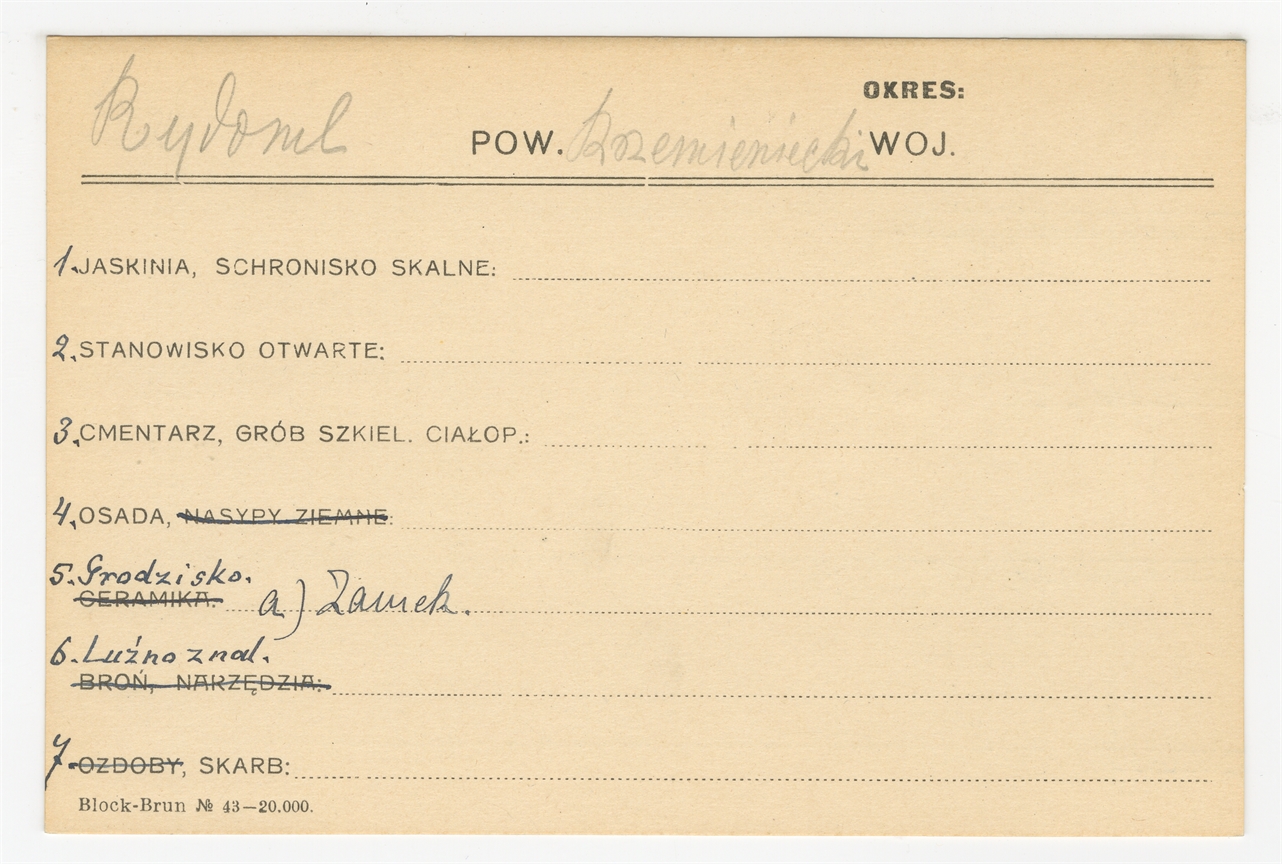 OKRES:
Rydoml POW. Krzemieniecki WOJ.
1. JASKINIA, SCHRONISKO SKALNE:
2. STANOWISKO OTWARTE:
3. CMENTARZ, GRÓB SZKIEL. CIAŁOP.:
4. OSADA, NASYPY ZIEMNE:
5. Grodzisko.
CERAMIKA: a) Zamek.
6. Luźno znal.
BROŃ, NARZĘDZIA:
7. OZDOBY, SKARB:
Block-Brun № 43—20.000.